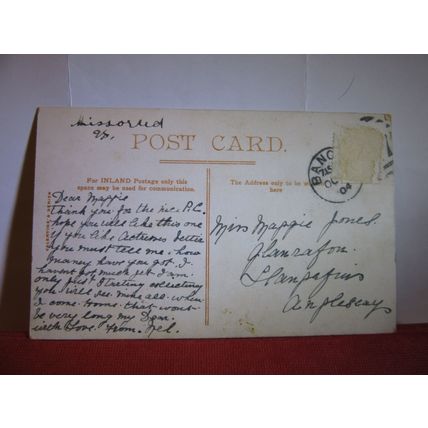 Missorted
POST CARD.
For INLAND Postage only this
space may be used for communication.
The Address only to be
here
BANG
OC
04
Dear Maggie
Thank you for the nice P.C.
hope you will like this one
you like Actresses better
you must tell me. how
many have you got. I
havent got much yet I am
only just starting collecting
you will see mine all when
I come Home. that wont
be very long my Dear.
with Love. from Nel.
Miss Maggie Jones.
Glanrafon.
Llangafin
Anglesey